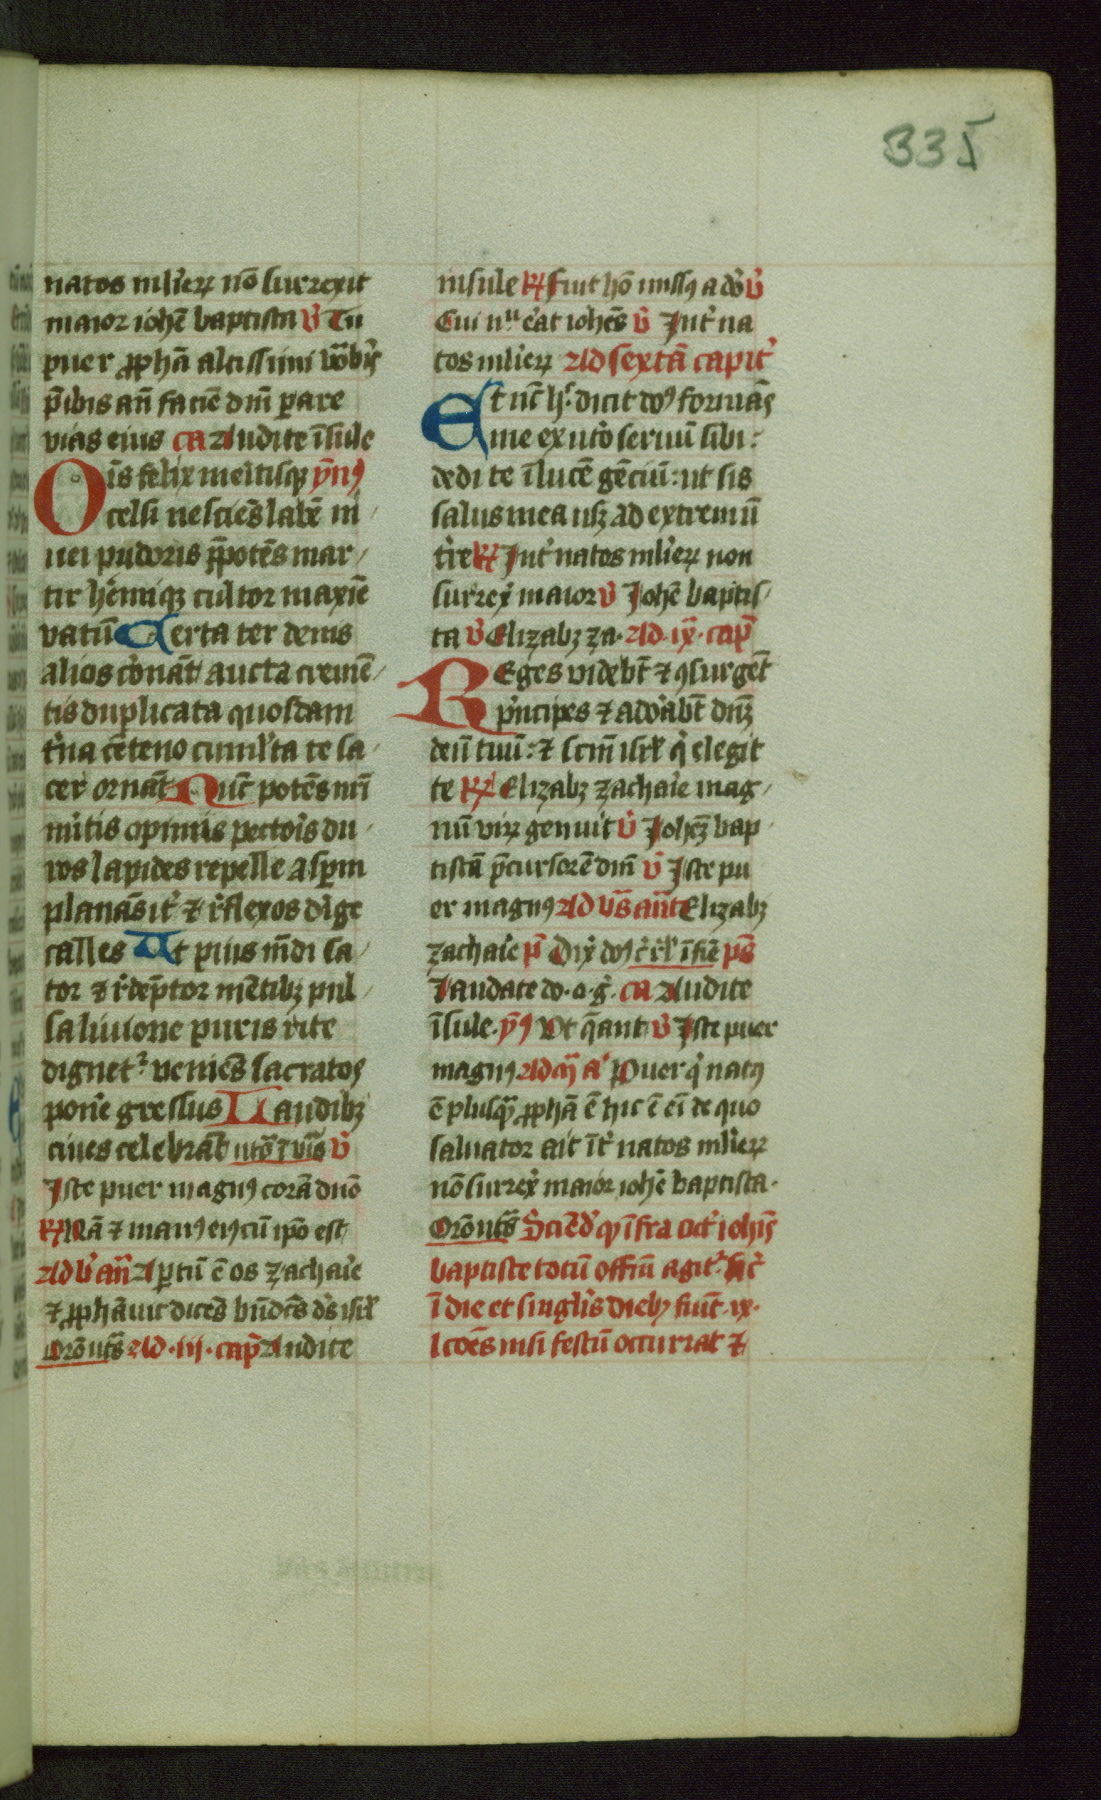 335
natos mlier̄ꝝ nō surrexit
maior iohēs baptista v̄ Tu
puer ꝓphā altissimi vocab̄is
p̄ibis an̄ faciē dn̄i parare
vias eius ca Audite īsule
Ois felix meritisqꝫ ym̄ꝰ
celsi nesciēs labē ni
uei pudoris p̄potēs mar
tir heremiqꝫ cultor maxīe
vatū Serta ter denis
alios corōnāt aucta cremē
tis duplicata quosdam
trina cēteno cumulata te sa
cer ornāt Nūc potēs nr̄i
mitis opimis pectoris du
ros lapides repelle asperū
planās it̄ ⁊ reflexos dirige
calles At pius mūdi sa
tor ⁊ redēptor mētibꝫ pul
sa liuione puris rite
dignet᷑ veniēs sacratos
ponere gressus Laudibꝫ
ciues celebrāt ut ī vis v̄
Iste puer magnꝰ corā dn̄o
℟ Nā ⁊ manꝰ eiꝰ cū ip̄o est
Ad b̄ an̄ Apertū ē os zacharie
⁊ ꝓphāuit dicēs bn̄dcs ds isrl̄
Orō ut s̄ Ad .iij. cap̄ Audite
insule ℟ fuit hō missꝰ a deo v̄
Cui nᵒ erat iohēs v̄ Int̄ na
tos mlier̄ꝝ Ad sextā capit̄
Et nūc h̄ dicit dn̄s formās
me ex utero seruū sibi:
dedi te ī lucē gēciū: ut sis
salus mea usqꝫ ad extremū
t̄re ℟ Int̄ natos mlier̄ꝝ non
surrex̄ maior v̄ Iohēs baptis
ta v̄ Elizabꝫ za. Ad .ix. cap̄
Reges videbūt ⁊ ꝯsurgēt
p̄ncipes ⁊ adorabūt dn̄ꝫ
deū tuū: ⁊ scm̄ isrl̄ q̄ elegit
te ℟ Elizabꝫ zacharie mag
nū virꝫ genuit v̄ Iohēꝫ bap
tistā p̄cursorē dn̄i v̄ Iste pu
er magnꝰ Ad vs̄ an̄t Elizabꝫ
zacharie p̄ Dix̄ dn̄s īfine ps̄
Laudate do. o. ḡ. ca Audite
īsule. ym̄ꝰ Vt q̄ant v̄ Iste puer
magnꝰ Ad m̄ a᷑ Puer q̄ natꝰ
ē plusqꝫ ꝓphā ē hic ē eī de quo
saluator ait īt̄ natos mlier̄ꝝ
nō surrex̄ maior iohē baptista.
Orō ut s̄ Sciēd̄ qꝫ īfra oct̄ iohīs
baptiste totū offm̄ agit᷑ sic̄
ī die et singlis diebꝫ fiūt .ix.
lctōes nisi festū occurrat ⁊